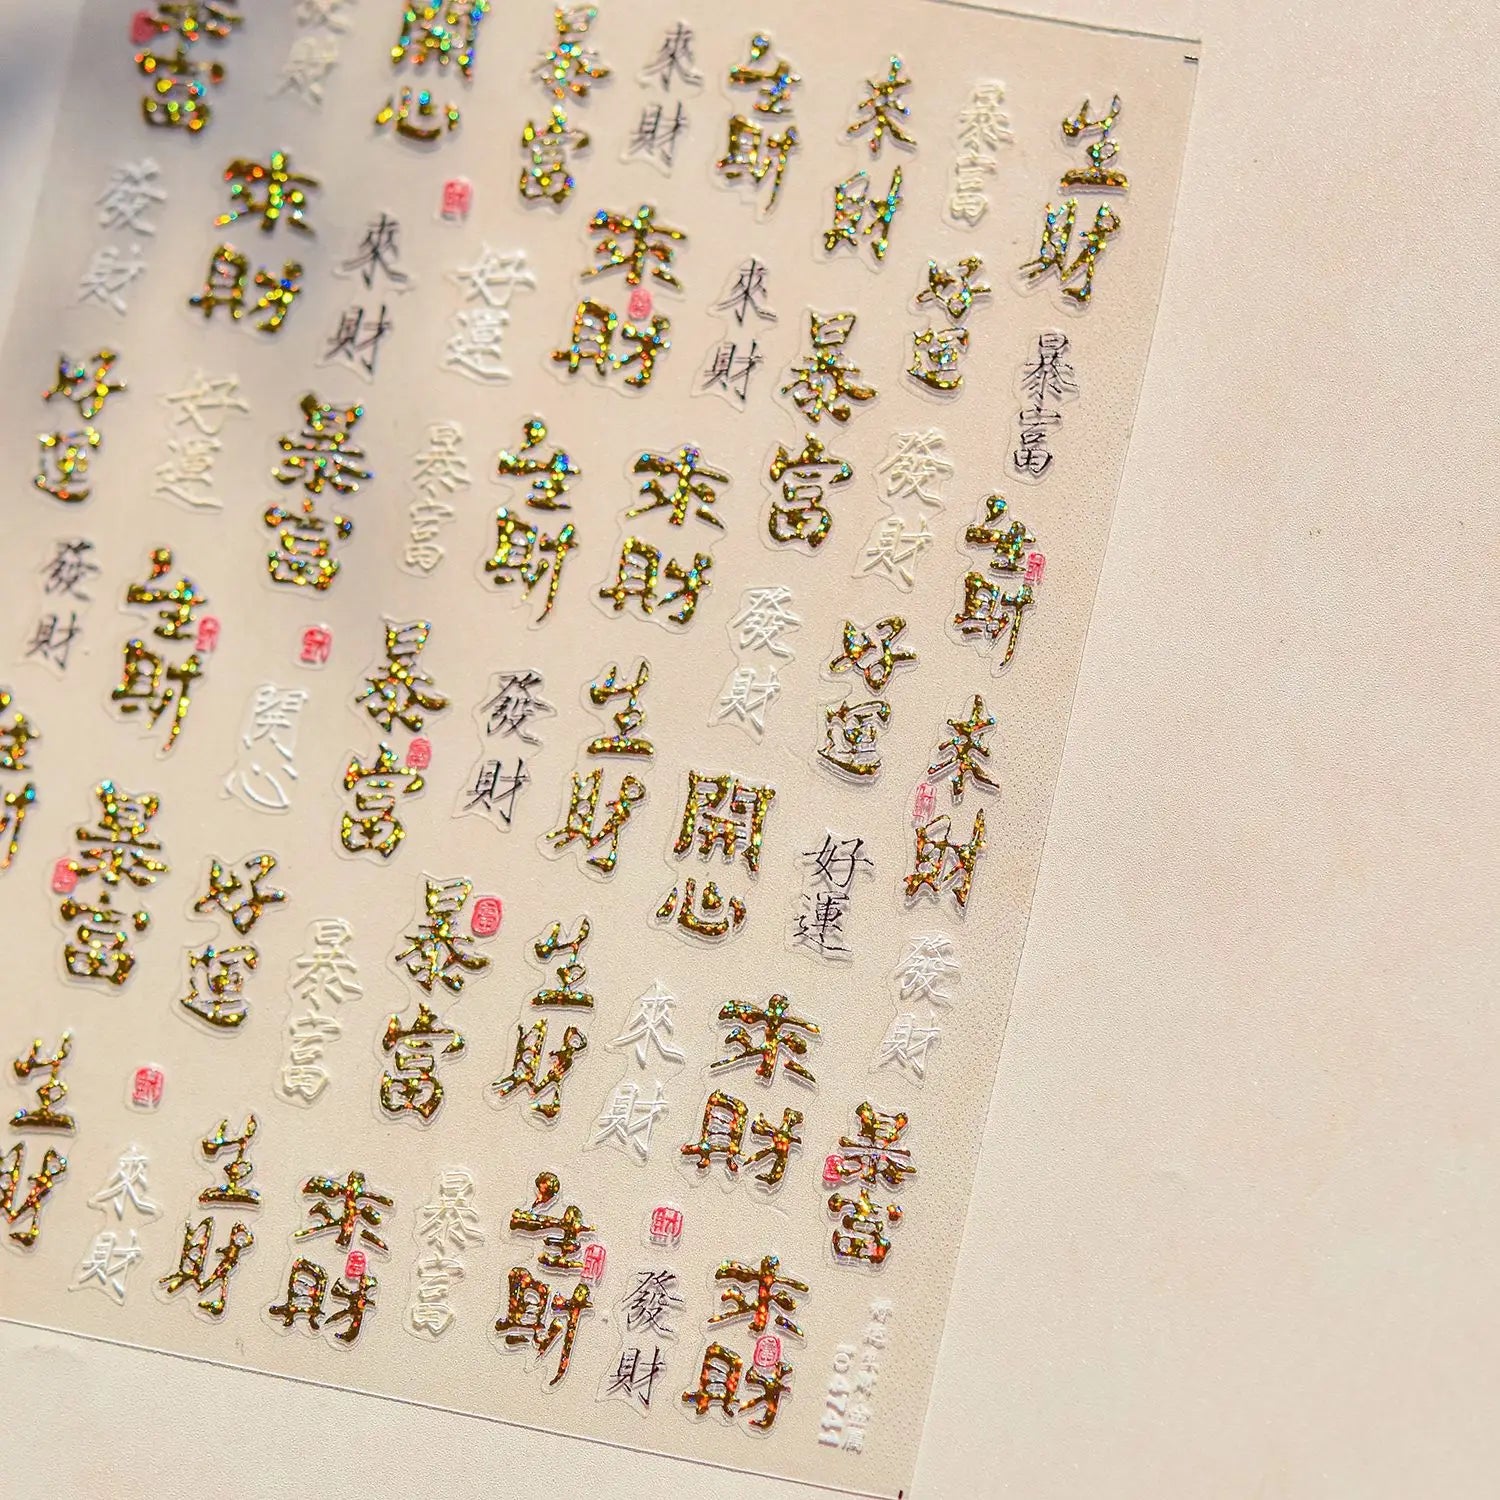 暴富
發財
開心
暴富
來財
生財
來財
暴富
生財
發財
來財
來財
好運
來財
來財
暴富
好運
暴富
好運
好運
暴富
暴富
生財
來財
發財
生財
發財
生財
開心
暴富
發財
生財
發財
好運
來財
暴富
好運
暴富
暴富
生財
開心
好運
發財
生財
來財
生財
來財
暴富
生財
來財
暴富
發財
來財
io4741